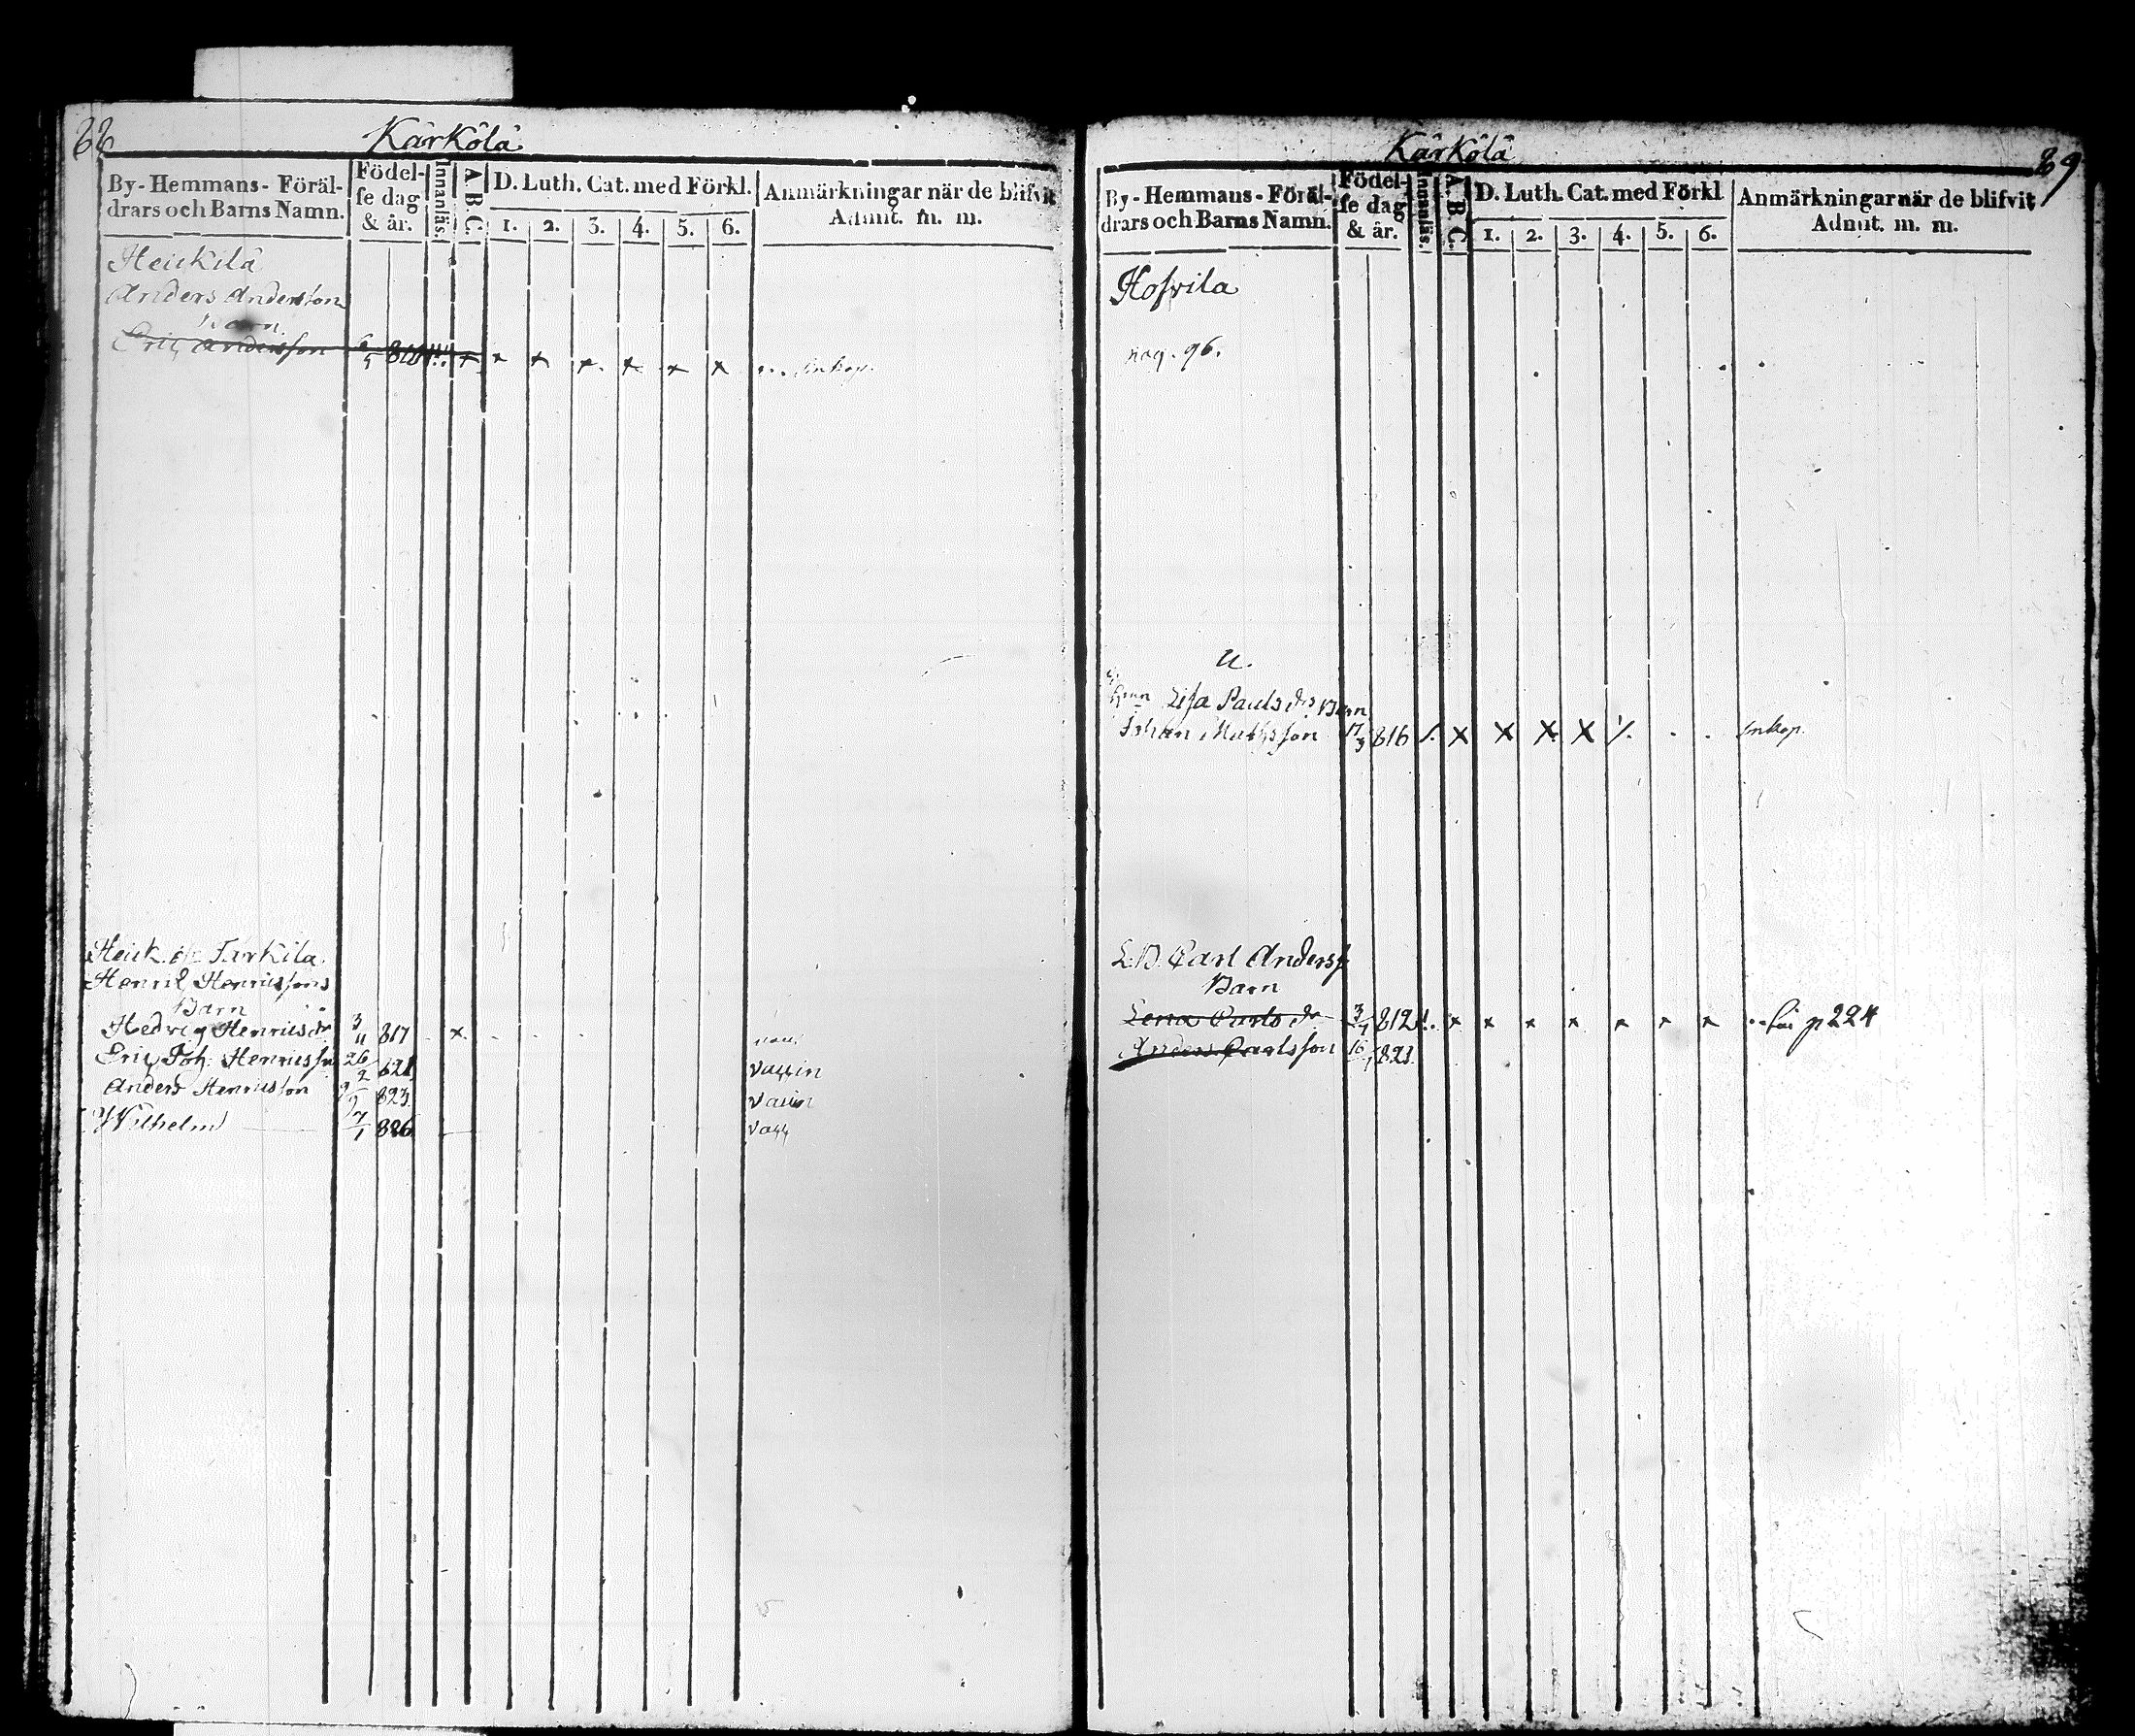 88
Kärkölä
By-Hemmans-Föräl-
drars och Barns Namn.
Födel-
se dag
& år.
Innanläs.
A.B.C.
D. Luth. Cat. med Förkl.
1. 2. 3. 4. 5. 6.
Anmärkningar när de blifvit
Admit. m. m.
Heickilä
Anders Andersson
Barn
Eric Andersson 6/5 x x x x x x x Inkop.
Henric Henricssons
Barn
Hedvig Henricsdr 3/11 817 x
Eric Joh. Henricsson 26/2 821
Anders Henricsson 823
Wilhelm 7/1 826
Kärkölä
89
By-Hemmans-Föräl-
drars och Barns Namn.
Födel-
se dag
& år.
Innanläs.
A.B.C.
D. Luth. Cat. med Förkl
1. 2. 3. 4. 5. 6.
Anmärkningar när de blifvit
Admit. m. m.
Hofvila
pag. 96.
U.
Lisa Paulsdrs Barn
Johan Mathsson 17/3 816 /. x x x x Inkop.
L.B. Carl Andersf
Barn
Lena Carlsdr 3/1 812 x x x x x x x p 224
Anders Carlsson 823.